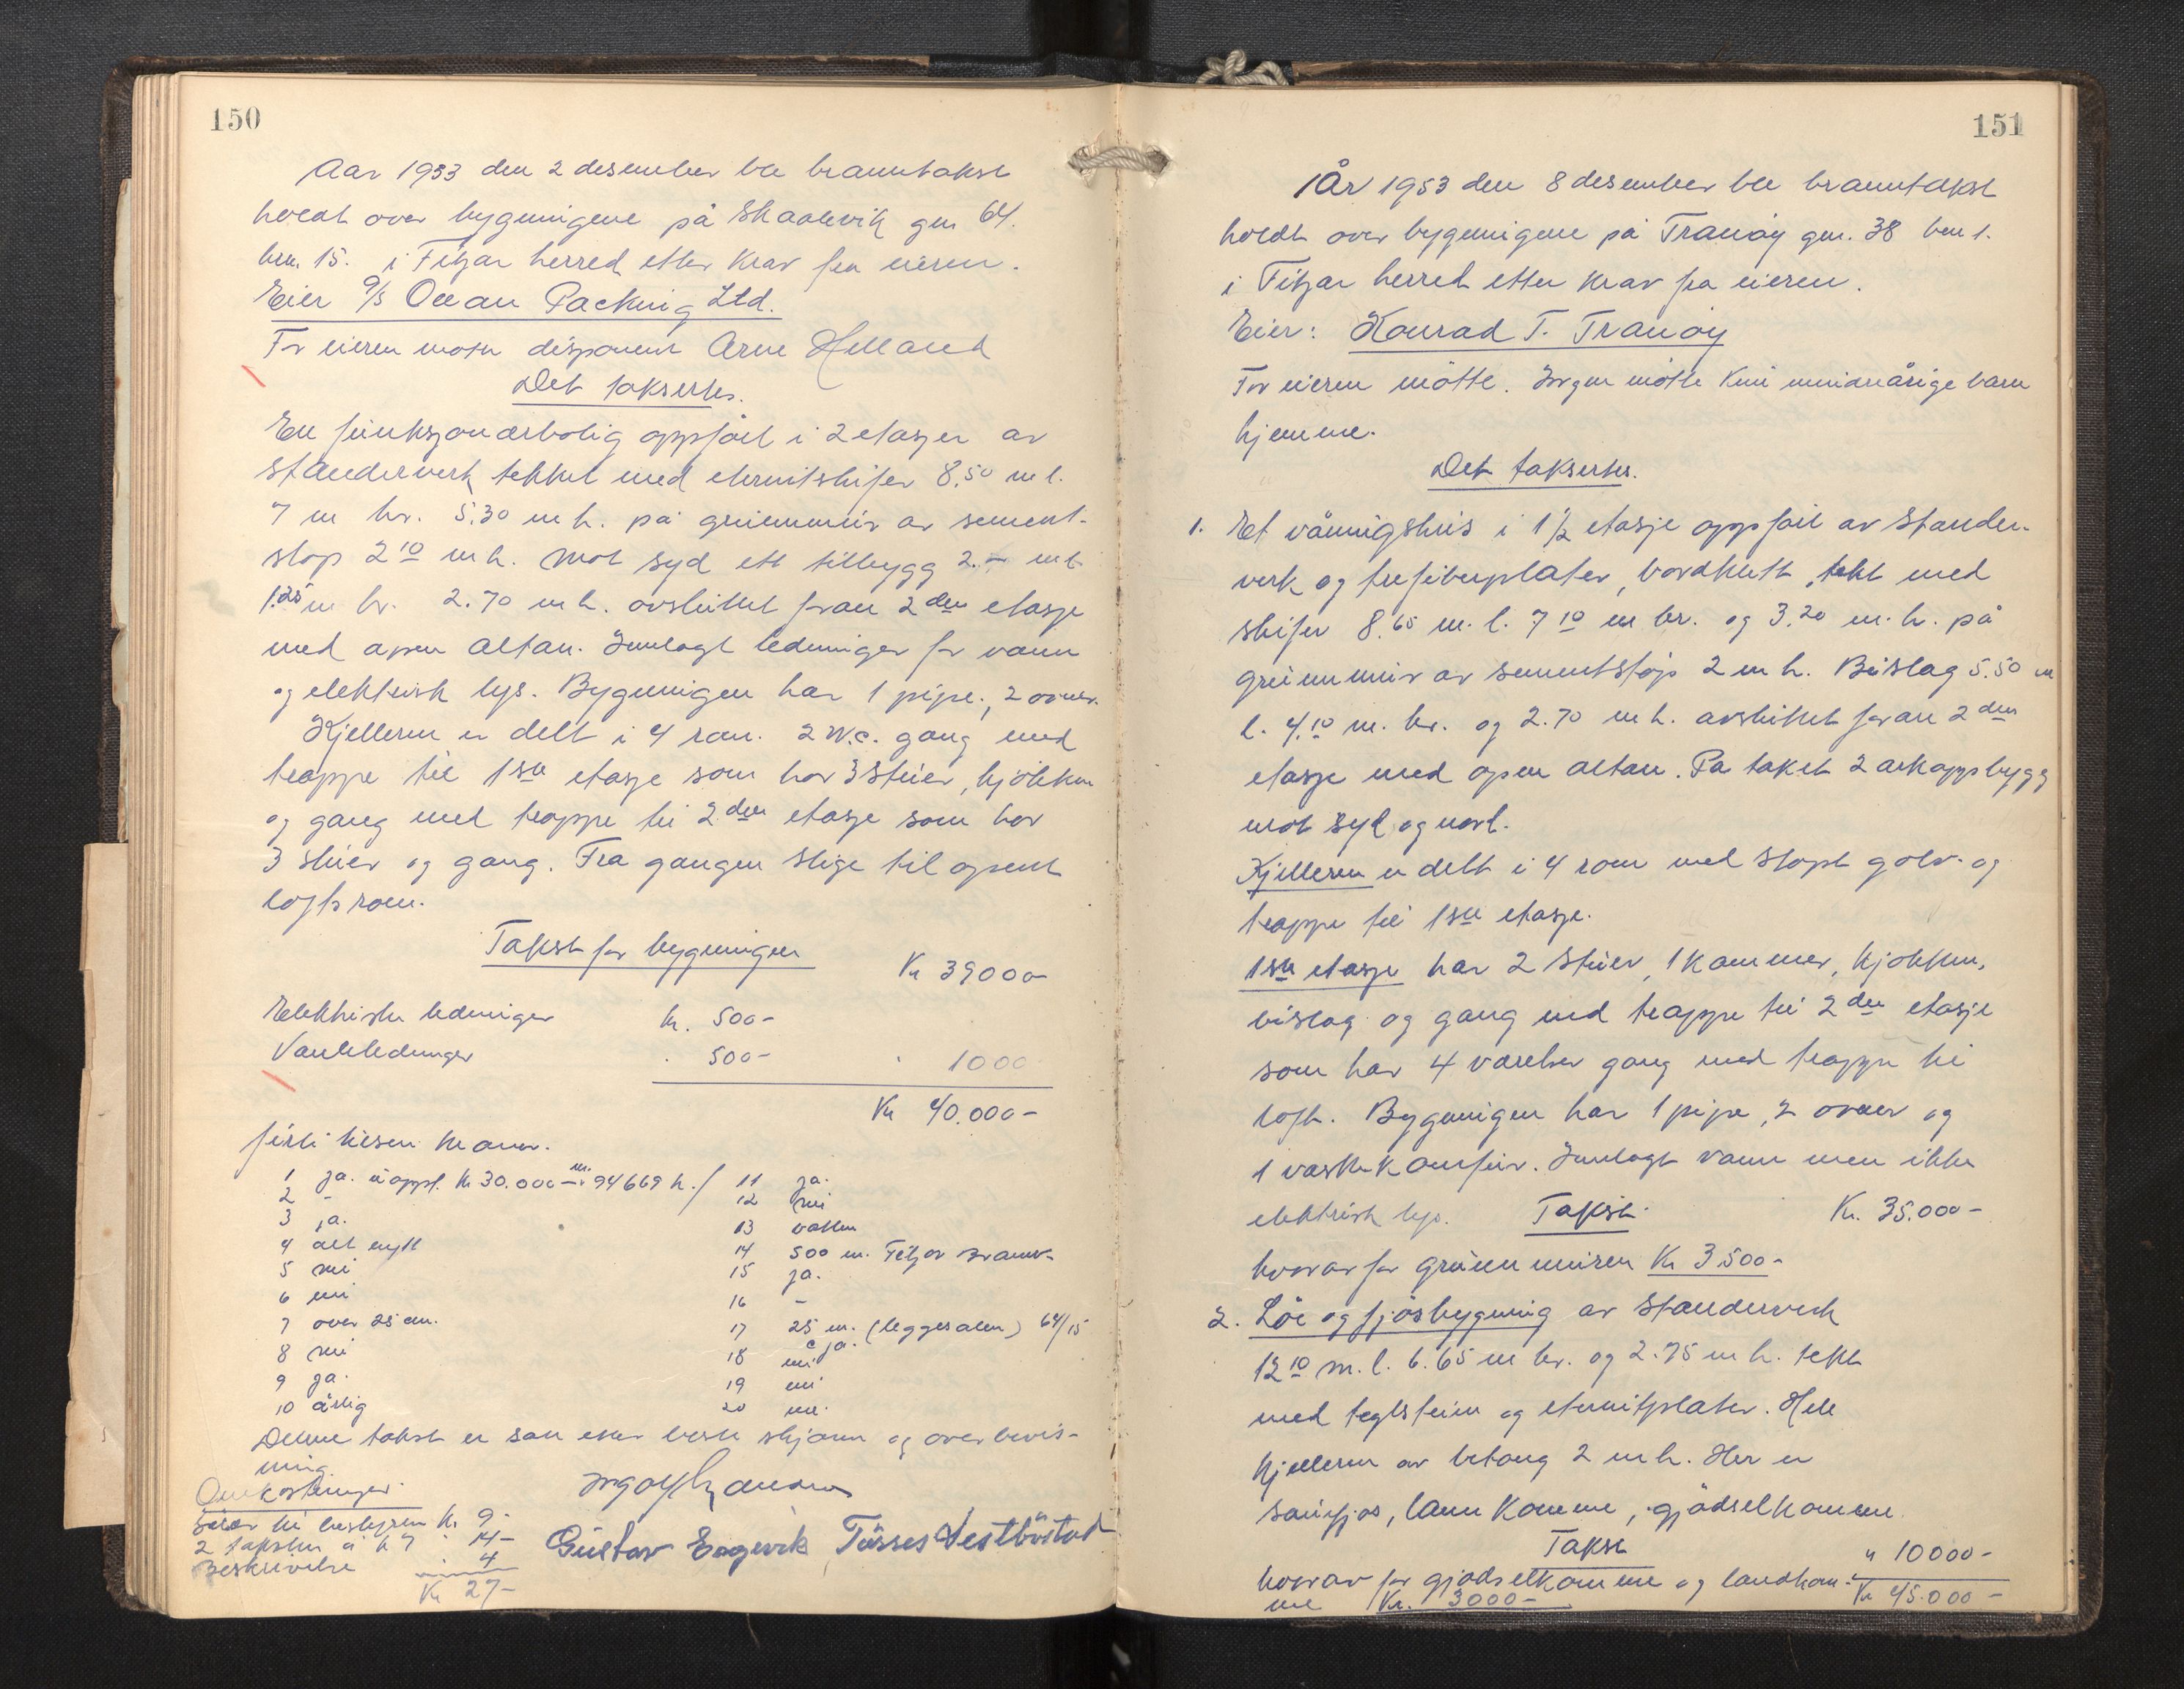 150
Aar 1953 den 2 desember ble branntakst
holdt over bygningene på Skaalevik gnr 64.
brn. 15. i Fitjar herred etter krav fra eieren.
Eier A/S Ocean Packing Ltd.
For eieren møtte disponent Arne Helland
Det takseres.
En funksjonærbolig oppført i 2 etasjer av
standerverk tekket med eternitskifer 8.50 m l.
7 m br. 5.30 m h. på grunnmur av sement-
støp 2 10 m h. Mot syd ett tilbygg 2.- m l
1.25 m br. 2.70 m h. avsluttet foran 2den etasje
med open altan. Innlagt ledninger for vann
og elektrisk lys. Bygningen har 1 pipe, 2 ovner.
Kjelleren er delt i 4 rom. 2 W.c. gang med
trappe til 1ste etasje som har 3 stuer, kjøkken
og gang med trappe til 2den etasje som har
3 stuer og gang. Fra gangen stige til opent
loftsrom.
Takst for bygningen
Kr 39000-
Elektriske ledninger kr. 500-
Vannledninger " 500- " 1000
Kr 40.000-
1 ja. oppt. Kr 30.000- nr. 94669 h.
2 -
3 ja.
4 alt nytt
5 nei
6 nei
7 over 25 cm.
8 nei
9 ja.
10 årlig
11 ja.
12 nei
13 vatten
14 500 m. Fitjar Brannv.
15 ja.
16 -
17 25 m. (leggesalen) 64/15
c ja.
18 nei
19 nei
20 nei.
Denne takst er satt etter beste skjønn og overbevis-
ning.
Omkostninger.
til bestyren kr. 9-
2 takstm. á kr 7 " 14-
Beskrivelse " 4
Kr 27-
Gustav Engevik Tørres Vestbøstad
151
År 1953 den 8 desember ble branntakst
holdt over bygningene på Tranøy gnr. 38 brn 1.
i Fitjar herred etter krav fra eieren.
Eier: Konrad T. Tranøy
For eieren møtte. Ingen møtte kun mindreårige barn
hjemme.
Det takseres.
1. Et våningshus i 1 1/2 etasje oppført av stander-
verk og trefiberplater, bordklett, tekt med
skifer 8.65 m. l. 7 10 m br. og 3.20 m. h. på
grunnmur av sementstøp 2 m h. Bislag 5.50 m
l. 4.10 m. br. og 2.70 m h. avsluttet foran 2den
etasje med open altan. På taket 2 arkoppbygg
mot syd og nord.
Kjelleren er delt i 4 rom med støpt golv og
trappe til 1ste etasje.
1ste etasje har 2 stuer, 1 kammer, kjøkken,
bislag og gang med trappe til 2den etasje
som har 4 værelser gang med trappe til
loft. Bygningen har 1 pipe, 2 ovner og
1 vaskekomfur. Innlagt vann men ikke
elektrisk lys. Takst. Kr. 35.000-
hvorav for grunnmuren Kr 3500-
2. Løe og fjøsbygning av standerverk
12 10 m. l. 6.65 m br. og 2.75 m h. tekt
med teglstein og eternitplater. Hele
kjelleren av betong 2 m h. Her er
sauefjøs, lannkomme, gjødselkomme.
Takst " 10000-
hvorav for gjødselkomme og landkom-
me Kr. 3000- Kr 45.000-